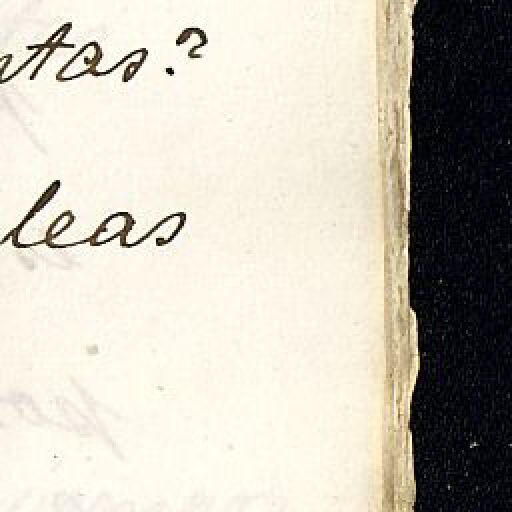 ntas?
leas